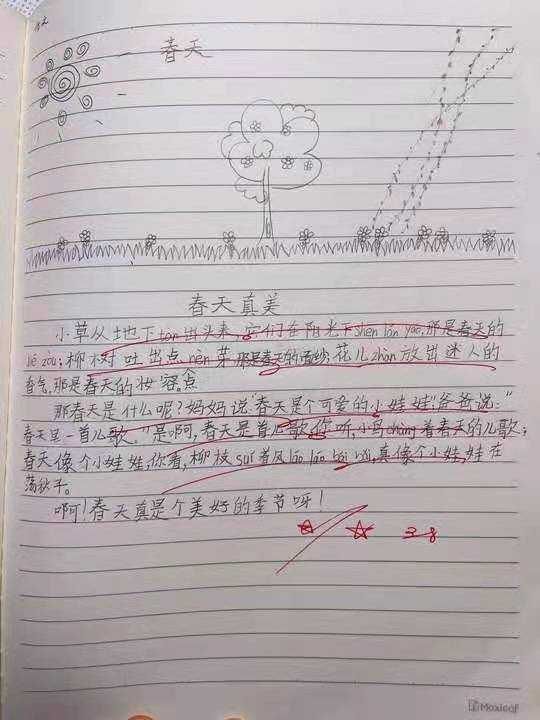 春天
春天真美
小草从地下tàn出头来,它们在阳光下shēn lǎn yāo,那是春天的
jié zòu;柳树吐出点点nèn芽那是春天的音纱;花儿zhàn放出迷人的
香气,那是春天的妆容。
那春天是什么呢?妈妈说:春天是个可爱的小娃娃!爸爸说:"
春天是一首儿歌。"是啊,春天是首儿歌你听,小鸟chàng着春天的儿歌;
春天像个小娃娃,你看,柳枝suí着风,真像个小娃娃在
荡秋千。
啊!春天真是个美好的季节呀!
3.8
Moxleaf